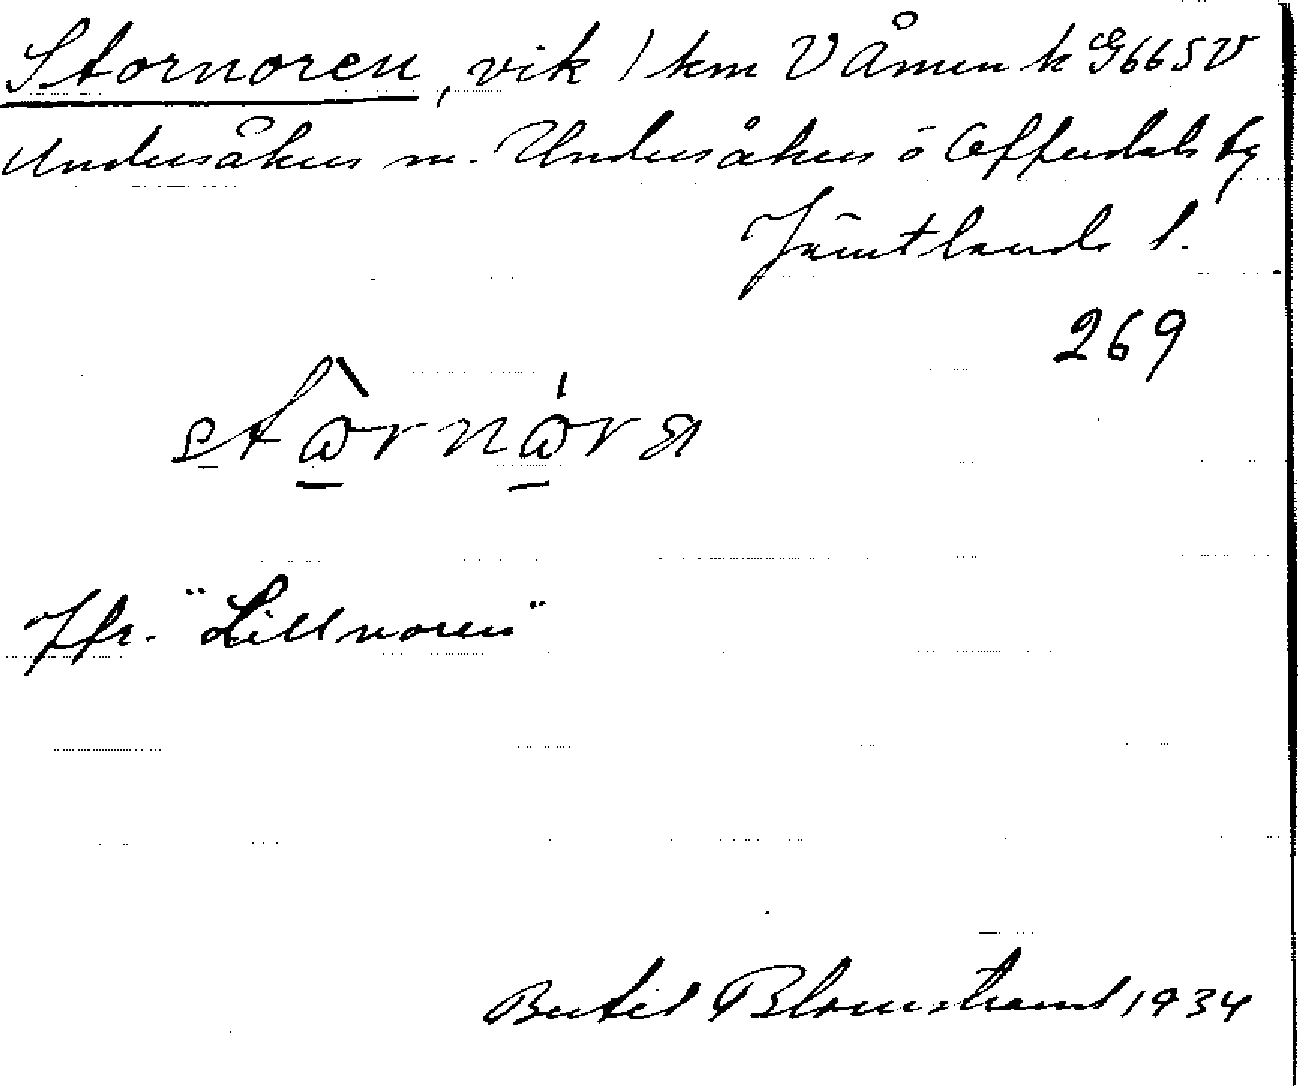 Stornoren, vik 1 km V Åmen k G665V
Undersåkers sn. Undersåkers o Offerdals tg
Jämtlands l.
269
Jfr. "Lillnoren"
Bertil Blomstrand 1934